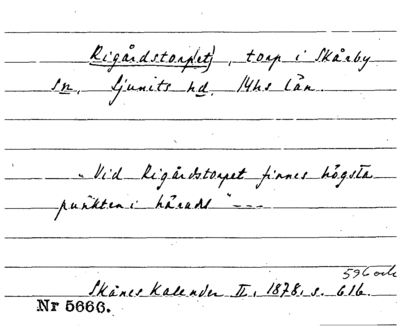 Rigårdstorp(et), torp i Skårby
sn. Ljunits hd. Mhs län.
„Vid Rigårdstorpet finnes högsta
punkten i härads" ---
596 och
Skånes Kalender II, 1878, s. 616.
Nr 5666.